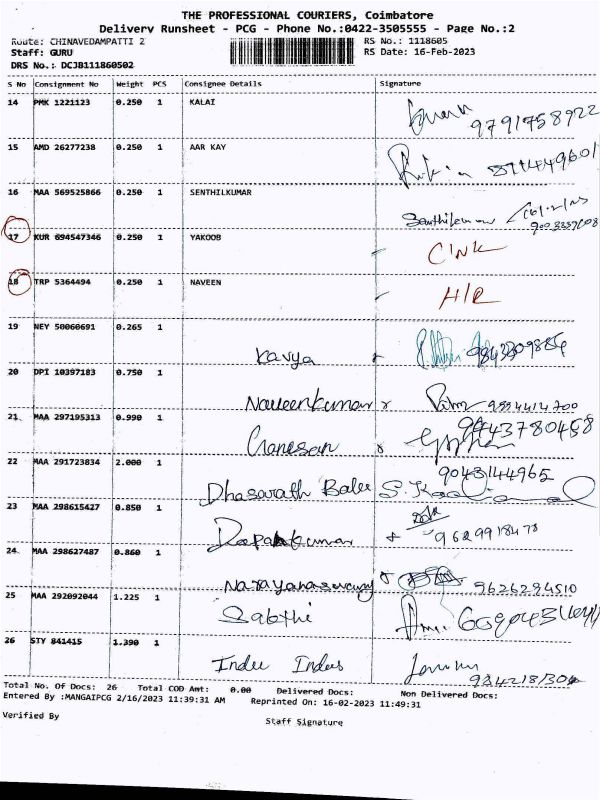 THE PROFESSIONAL COURIERS, Coimbatore
Delivery Runsheet - PCG - Phone No.:0422-3505555 - Page No.:2
Route: CHINAVEDAMPATTI 2 RS No.: 1118605
Staff: GURU RS Date: 16-Feb-2023
DRS No.: DCJB111860502
S No Consignment No Weight PCS Consignee Details Signature
14 PMK 1221123 0.250 1 KALAI
9791758922
15 AMD 26277238 0.250 1 AAR KAY
16 MAA 569525866 0.250 1 SENTHILKUMAR
Senthilkumar
17 KUR 694547346 0.250 1 YAKOOB C/NK
18 TRP 5364494 0.250 1 NAVEEN H/R
19 NEY 50060691 0.265 1
Kavya
20 DPI 10397183 0.750 1
Naveenkumar
21 MAA 297195313 0.990 1 9443780458
Ganesan
22 MAA 291723834 2.000 1 9043144965
Dhasarath Balu
23 MAA 298615427 0.850 1
Deepakkumar
24 MAA 298627487 0.860 1
Narayanaswamy 9626294510
25 MAA 292092044 1.225 1
Sabthi
26 STY 841415 1.390 1
Indu Indus
Total No. Of Docs: 26 Total COD Amt: 0.00 Delivered Docs: Non Delivered Docs:
Entered By :MANGAIPCG 2/16/2023 11:39:31 AM Reprinted On: 16-02-2023 11:49:31
Verified By Staff Signature